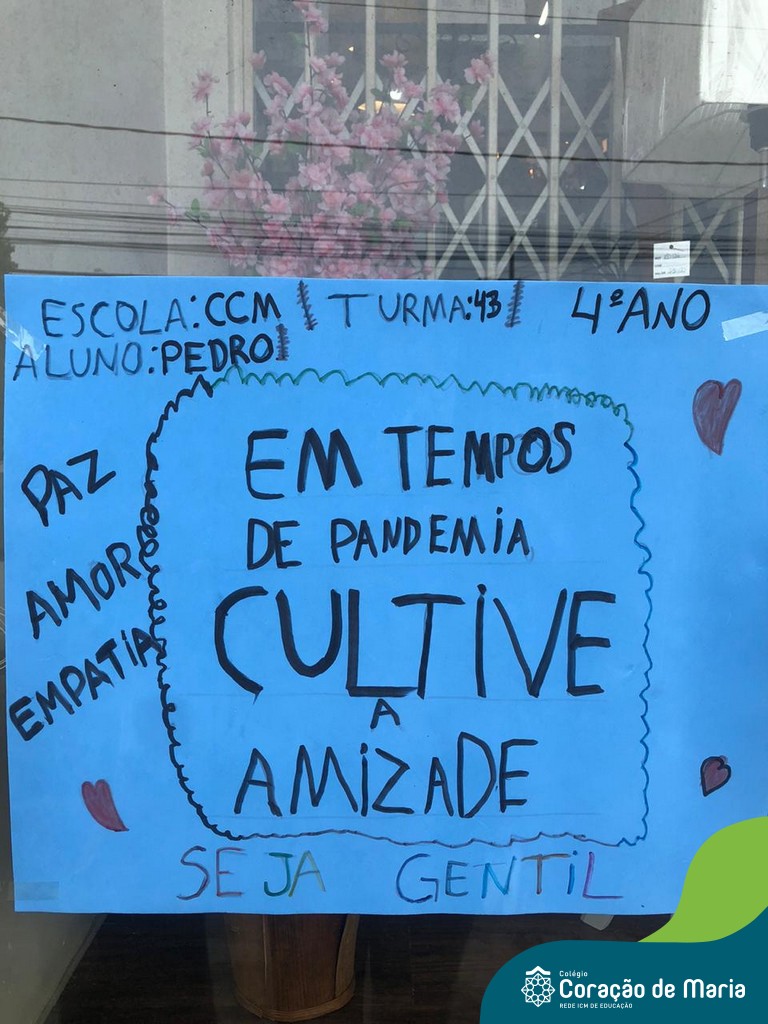 ESCOLA:CCM TURMA:43 4º ANO
ALUNO:PEDRO
PAZ
AMOR
EMPATIA
EM TEMPOS
DE PANDEMIA
CULTIVE
A
AMIZADE
SEJA GENTIL
Colégio
Coração de Maria
REDE ICM DE EDUCAÇÃO